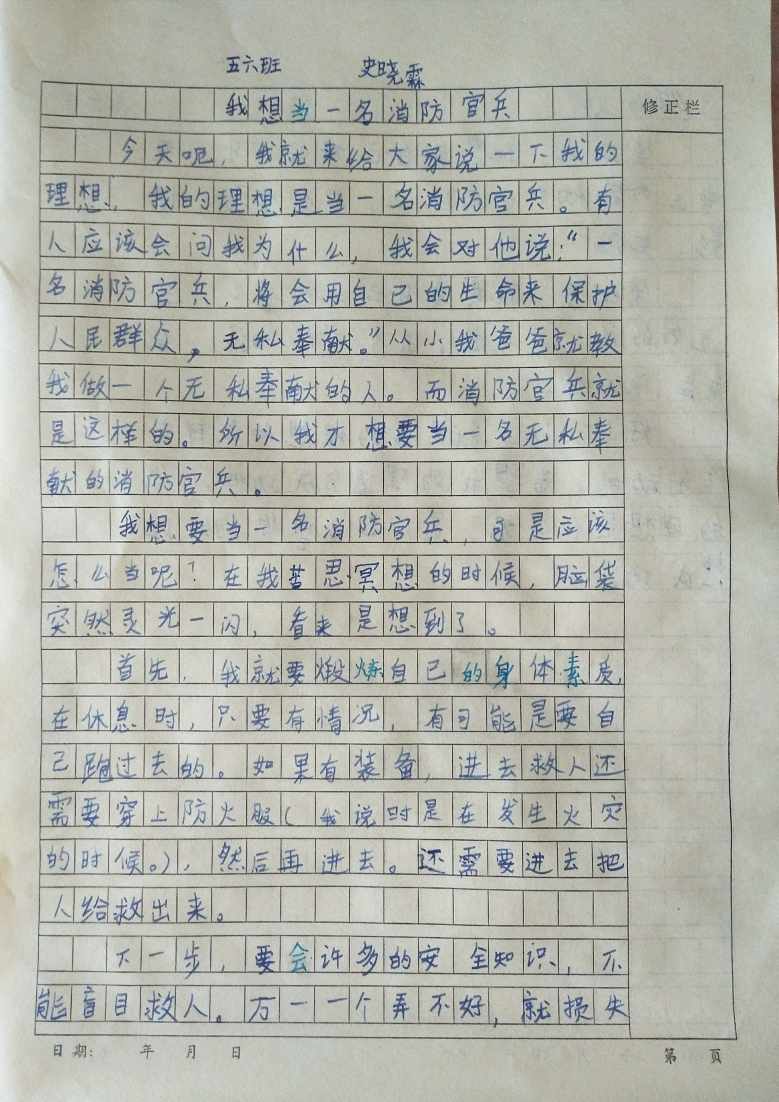 五六班 史晓霖
我想当一名消防官兵
修正栏
今天呢，我就来给大家说一下我的
理想，我的理想是当一名消防官兵。有
人应该会问我为什么，我会对他说：“一
名消防官兵，将会用自己的生命来保护
人民群众，无私奉献。”从小我爸爸就教
我做一个无私奉献的人。而消防官兵就
是这样的。所以我才想要当一名无私奉
献的消防官兵。
我想要当一名消防官兵，可是应该
怎么当呢？在我苦思冥想的时候，脑袋
突然灵光一闪，看来是想到了。
首先，我就要煅炼自己的身体素质，
在休息时，只要有情况，有可能是要自
己跑过去的。如果有装备，进去救人还
需要穿上防火服（我说时是在发生火灾
的时候。），然后再进去。还需要进去把
人给救出来。
下一步，要会许多的安全知识，不
能盲目救人。万一一个弄不好，就损失
日期： 年 月 日 第 页